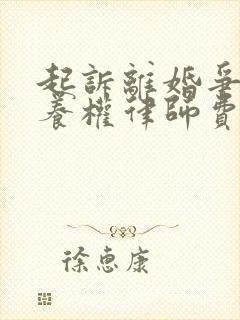 起訴離婚爭
養權律師費
徐惠康